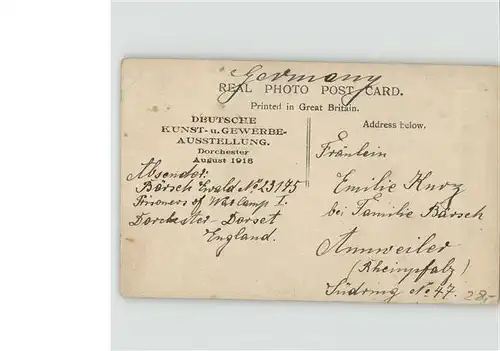 Germany
REAL PHOTO POST CARD.
Printed in Great Britain.
DEUTSCHE
KUNST- u. GEWERBE-
AUSSTELLUNG.
Dorchester
August 1916
Address below.
Absender:
Börsch Ewald No 23175
Prisoners of War Camp I.
Dorchester-Dorset
England.
Fräulein
Emilie Kurz
bei Familie Börsch
Annweiler
(Rheinpfalz)
Südring No 47.
28,-